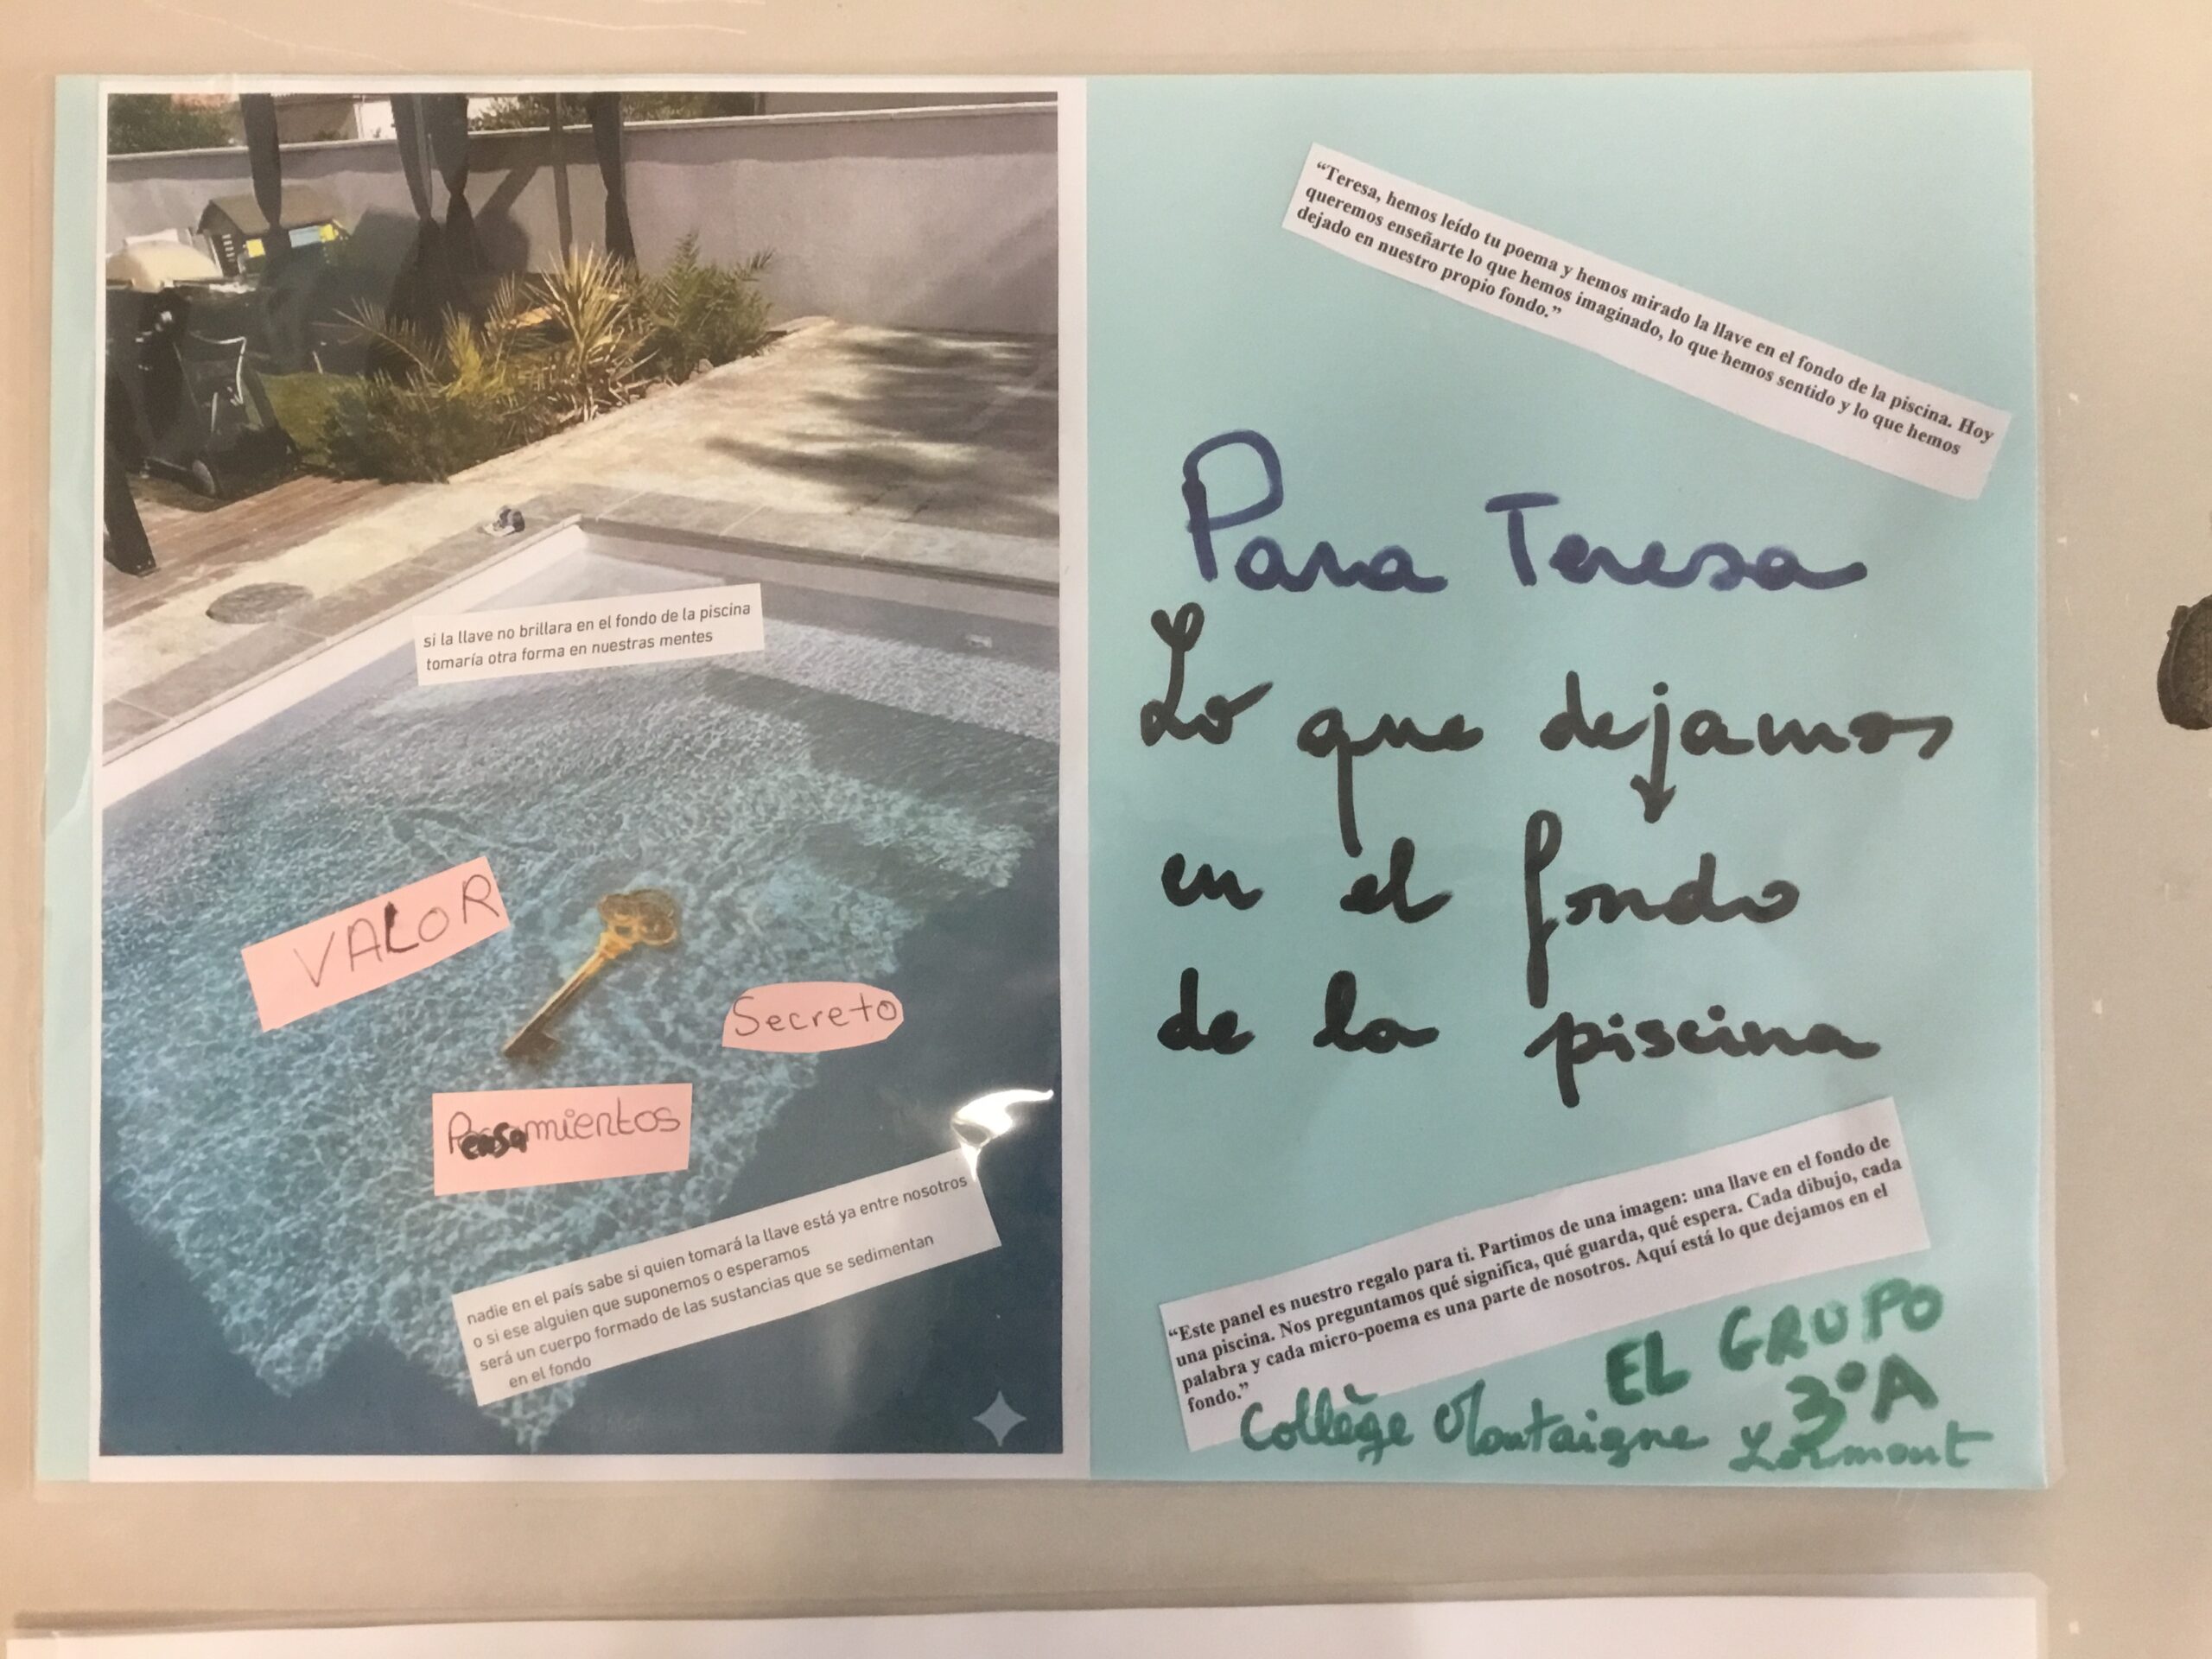 si la llave no brillara en el fondo de la piscina
tomaría otra forma en nuestras mentes
VALOR
Secreto
Pensamientos
nadie en el país sabe si quien tomará la llave está ya entre nosotros
o si ese alguien que suponemos o esperamos
será un cuerpo formado de las sustancias que se sedimentan
en el fondo
“Teresa, hemos leído tu poema y hemos mirado la llave en el fondo de la piscina. Hoy
queremos enseñarte lo que hemos imaginado, lo que hemos sentido y lo que hemos
dejado en nuestro propio fondo.”
Para Teresa
Lo que dejamos
en el fondo
de la piscina
“Este panel es nuestro regalo para ti. Partimos de una imagen: una llave en el fondo de
una piscina. Nos preguntamos qué significa, qué guarda, qué espera. Cada dibujo, cada
palabra y cada micro-poema es una parte de nosotros. Aquí está lo que dejamos en el
fondo.”
EL GRUPO
3°A
Collège Montaigne Lormont